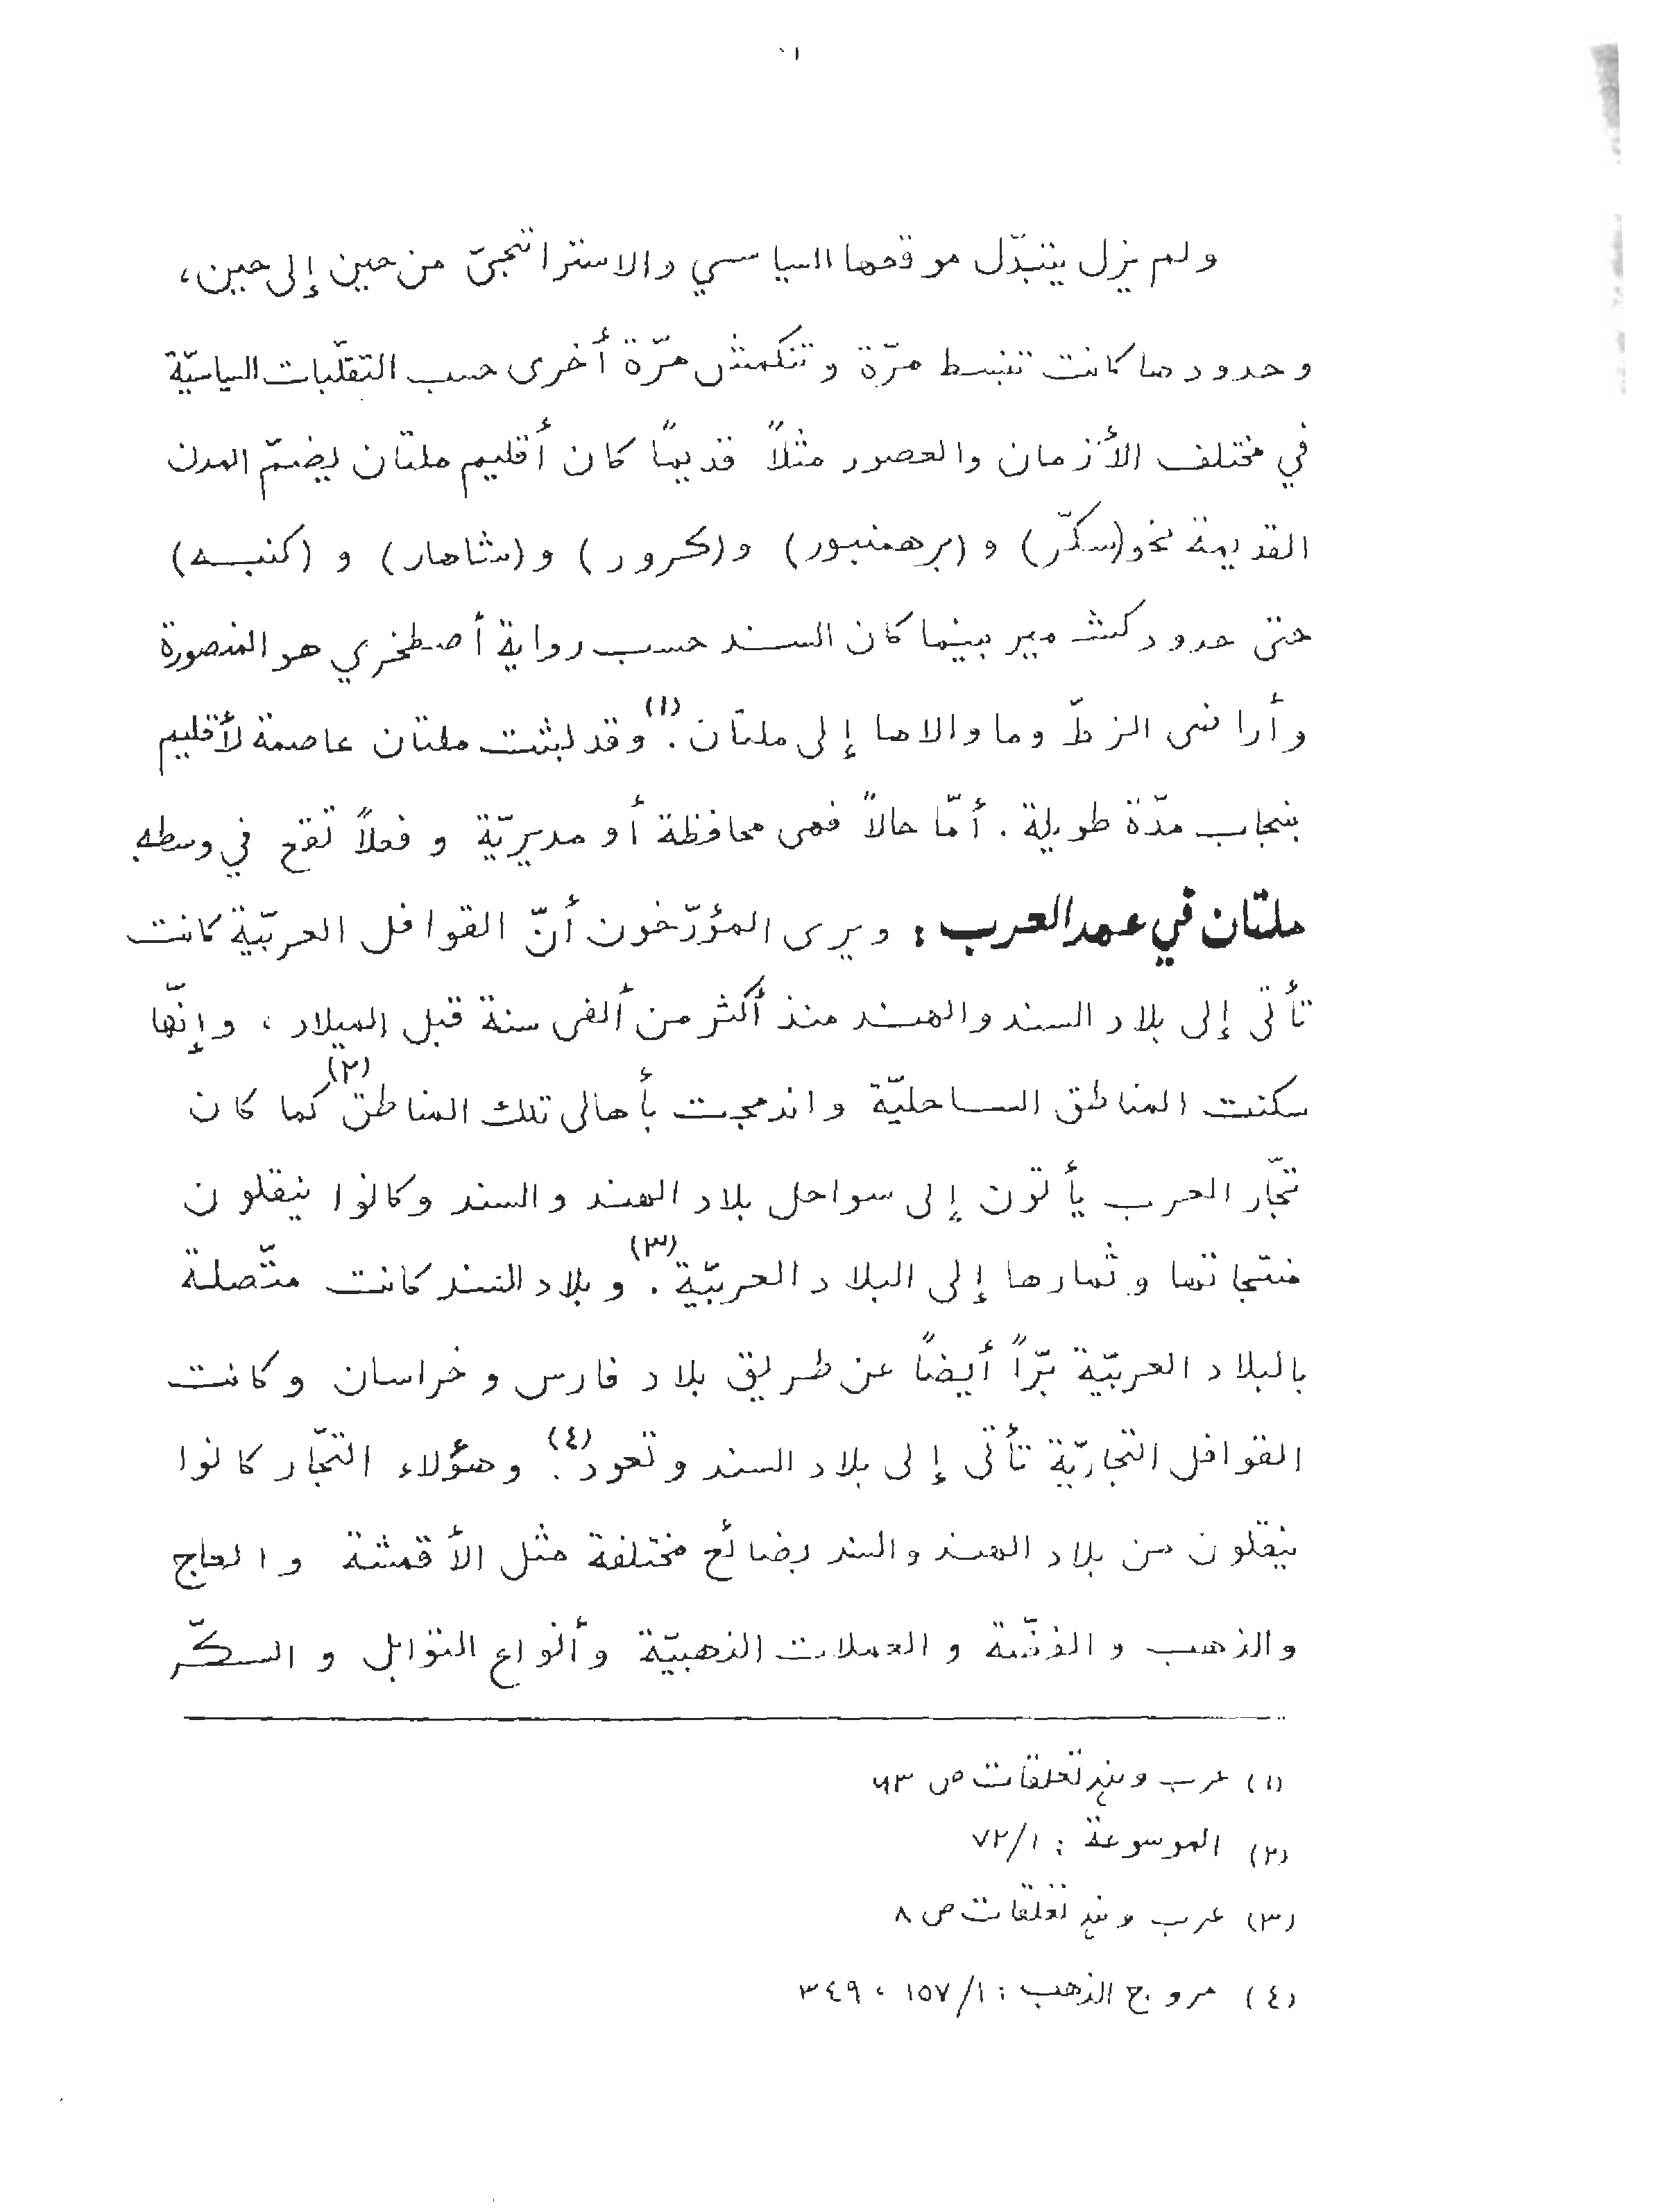 ولم يزل يتبدّل موقعها السياسي والاستراتيجيّ من حين إلى حين،
وحدودها كانت تنبسط مرّة وتنكمش مرّة أخرى حسب التقلّبات السياسيّة
في مختلف الأزمان والعصور مثلاً قديمًا كان أقليم ملتان يضمّ المدن
القديمة نحو (سكّر) و (برهمنبور) و (كرور) و (شاهار) و (كنبه)
حتى حدود كشمير بينما كان السند حسب رواية أصطخري هو المنصورة
وأراضى الزطّ وما والاها إلى ملتان.(١) وقد لبثت ملتان عاصمة لأقليم
بنجاب مدّة طويلة. أمّا حالاً فهى محافظة أو مديريّة وفعلاً تقع في وسطه
ملتان في عهد العرب : ويرى المؤرّخون أنّ القوافل العربيّة كانت
تأتى إلى بلاد السند والهند منذ أكثر من ألفى سنة قبل الميلاد، وإنّها
سكنت المناطق الساحليّة واندمجت بأهالى تلك المناطق(٢) كما كان
تجّار العرب يأتون إلى سواحل بلاد الهند والسند وكانوا ينقلون
منتجاتها وثمارها إلى البلاد العربيّة(٣). وبلاد السند كانت متّصلة
بالبلاد العربيّة برّاً أيضاً عن طريق بلاد فارس وخراسان وكانت
القوافل التجاريّة تأتى إلى بلاد السند وتعود(٤). وهؤلاء التجّار كانوا
ينقلون من بلاد الهند والسند بضائع مختلفة مثل الأقمشة والعاج
والذهب والفضّة والعملات الذهبيّة وأنواع التوابل والسكّر
(١) عرب وہند تعلقات ص ٦٣
(٢) الموسوعة : ١/٧٢
(٣) عرب وہند تعلقات ص ٨
(٤) مروج الذهب : ١/١٥٧، ٣٤٩